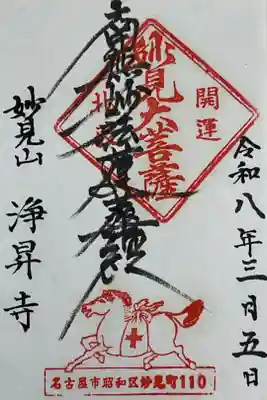 令和八年三月五日
開運
妙見大菩薩
南無妙法蓮華経
妙見山 浄昇寺
名古屋市昭和区妙見町110